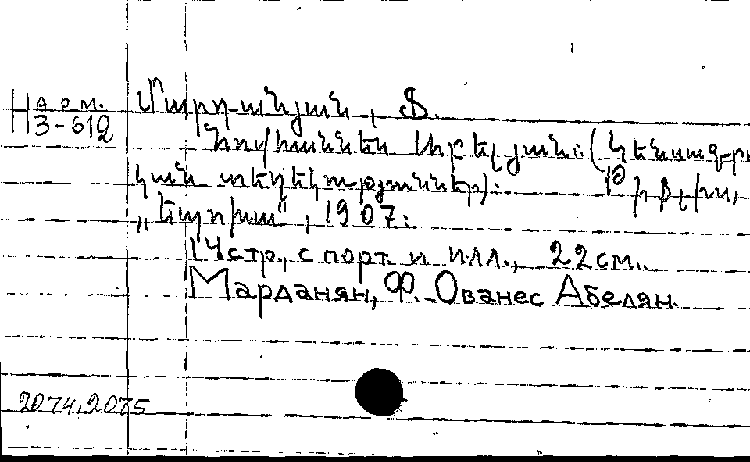 Нарм.
3-612
Մարդանյան, Ֆ.
Հովհաննես Աբելյան: (Կենսագր
կան տեղեկություններ):
Թիֆլիս,
„Եպոխա“, 1907:
14 стр., с порт. и илл., 22 см.
Марданян, Ф. Ованес Абелян.
2074, 2075